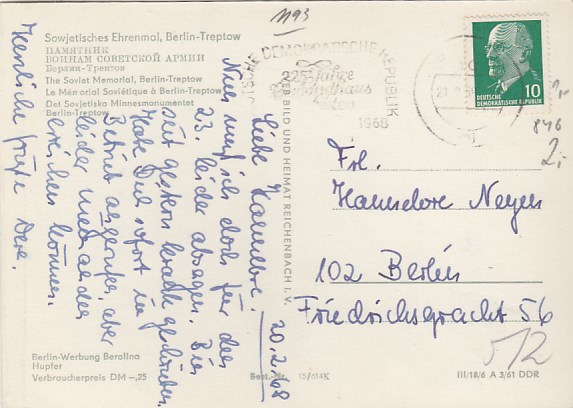 1193
Sowjetisches Ehrenmal, Berlin-Treptow
ПАМЯТНИК
ВОИНАМ СОВЕТСКОЙ АРМИИ
Берлин-Трептов
The Soviet Memorial, Berlin-Treptow
Le Mémorial Soviétique à Berlin-Treptow
Det Sovjetiska Minnesmonumentet
Berlin-Treptow
DEMOKRATISCHE REPUBLIK
225 Jahre
1968
10
DEUTSCHE
DEMOKRATISCHE REPUBLIK
846
2,-
VEB BILD UND HEIMAT REICHENBACH I. V.
20.2.68
Liebe Hannelore!
Nun muß ich doch für den
23. leider absagen. Bin
seit gestern krank geschrieben.
Habe Dich sofort im
Betrieb angerufen, aber
leider niemanden
erreichen können.
Herzliche Grüße Deine
Frl.
Hannelore
102 Berlin
Friedrichsgracht 56
512
Berlin-Werbung Berolina
Hupfer
Verbraucherpreis DM –,25
Best.-Nr. 15/614K
III/18/6 A 3/61 DDR